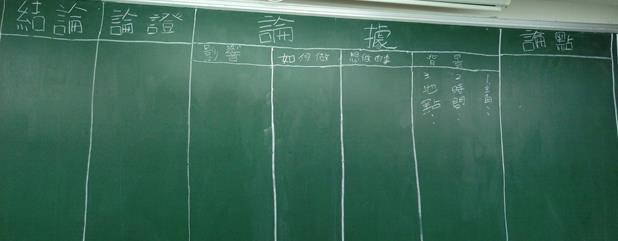 結論
論證
論據
論點
影響
如何做
背景
2時間：
3地點：